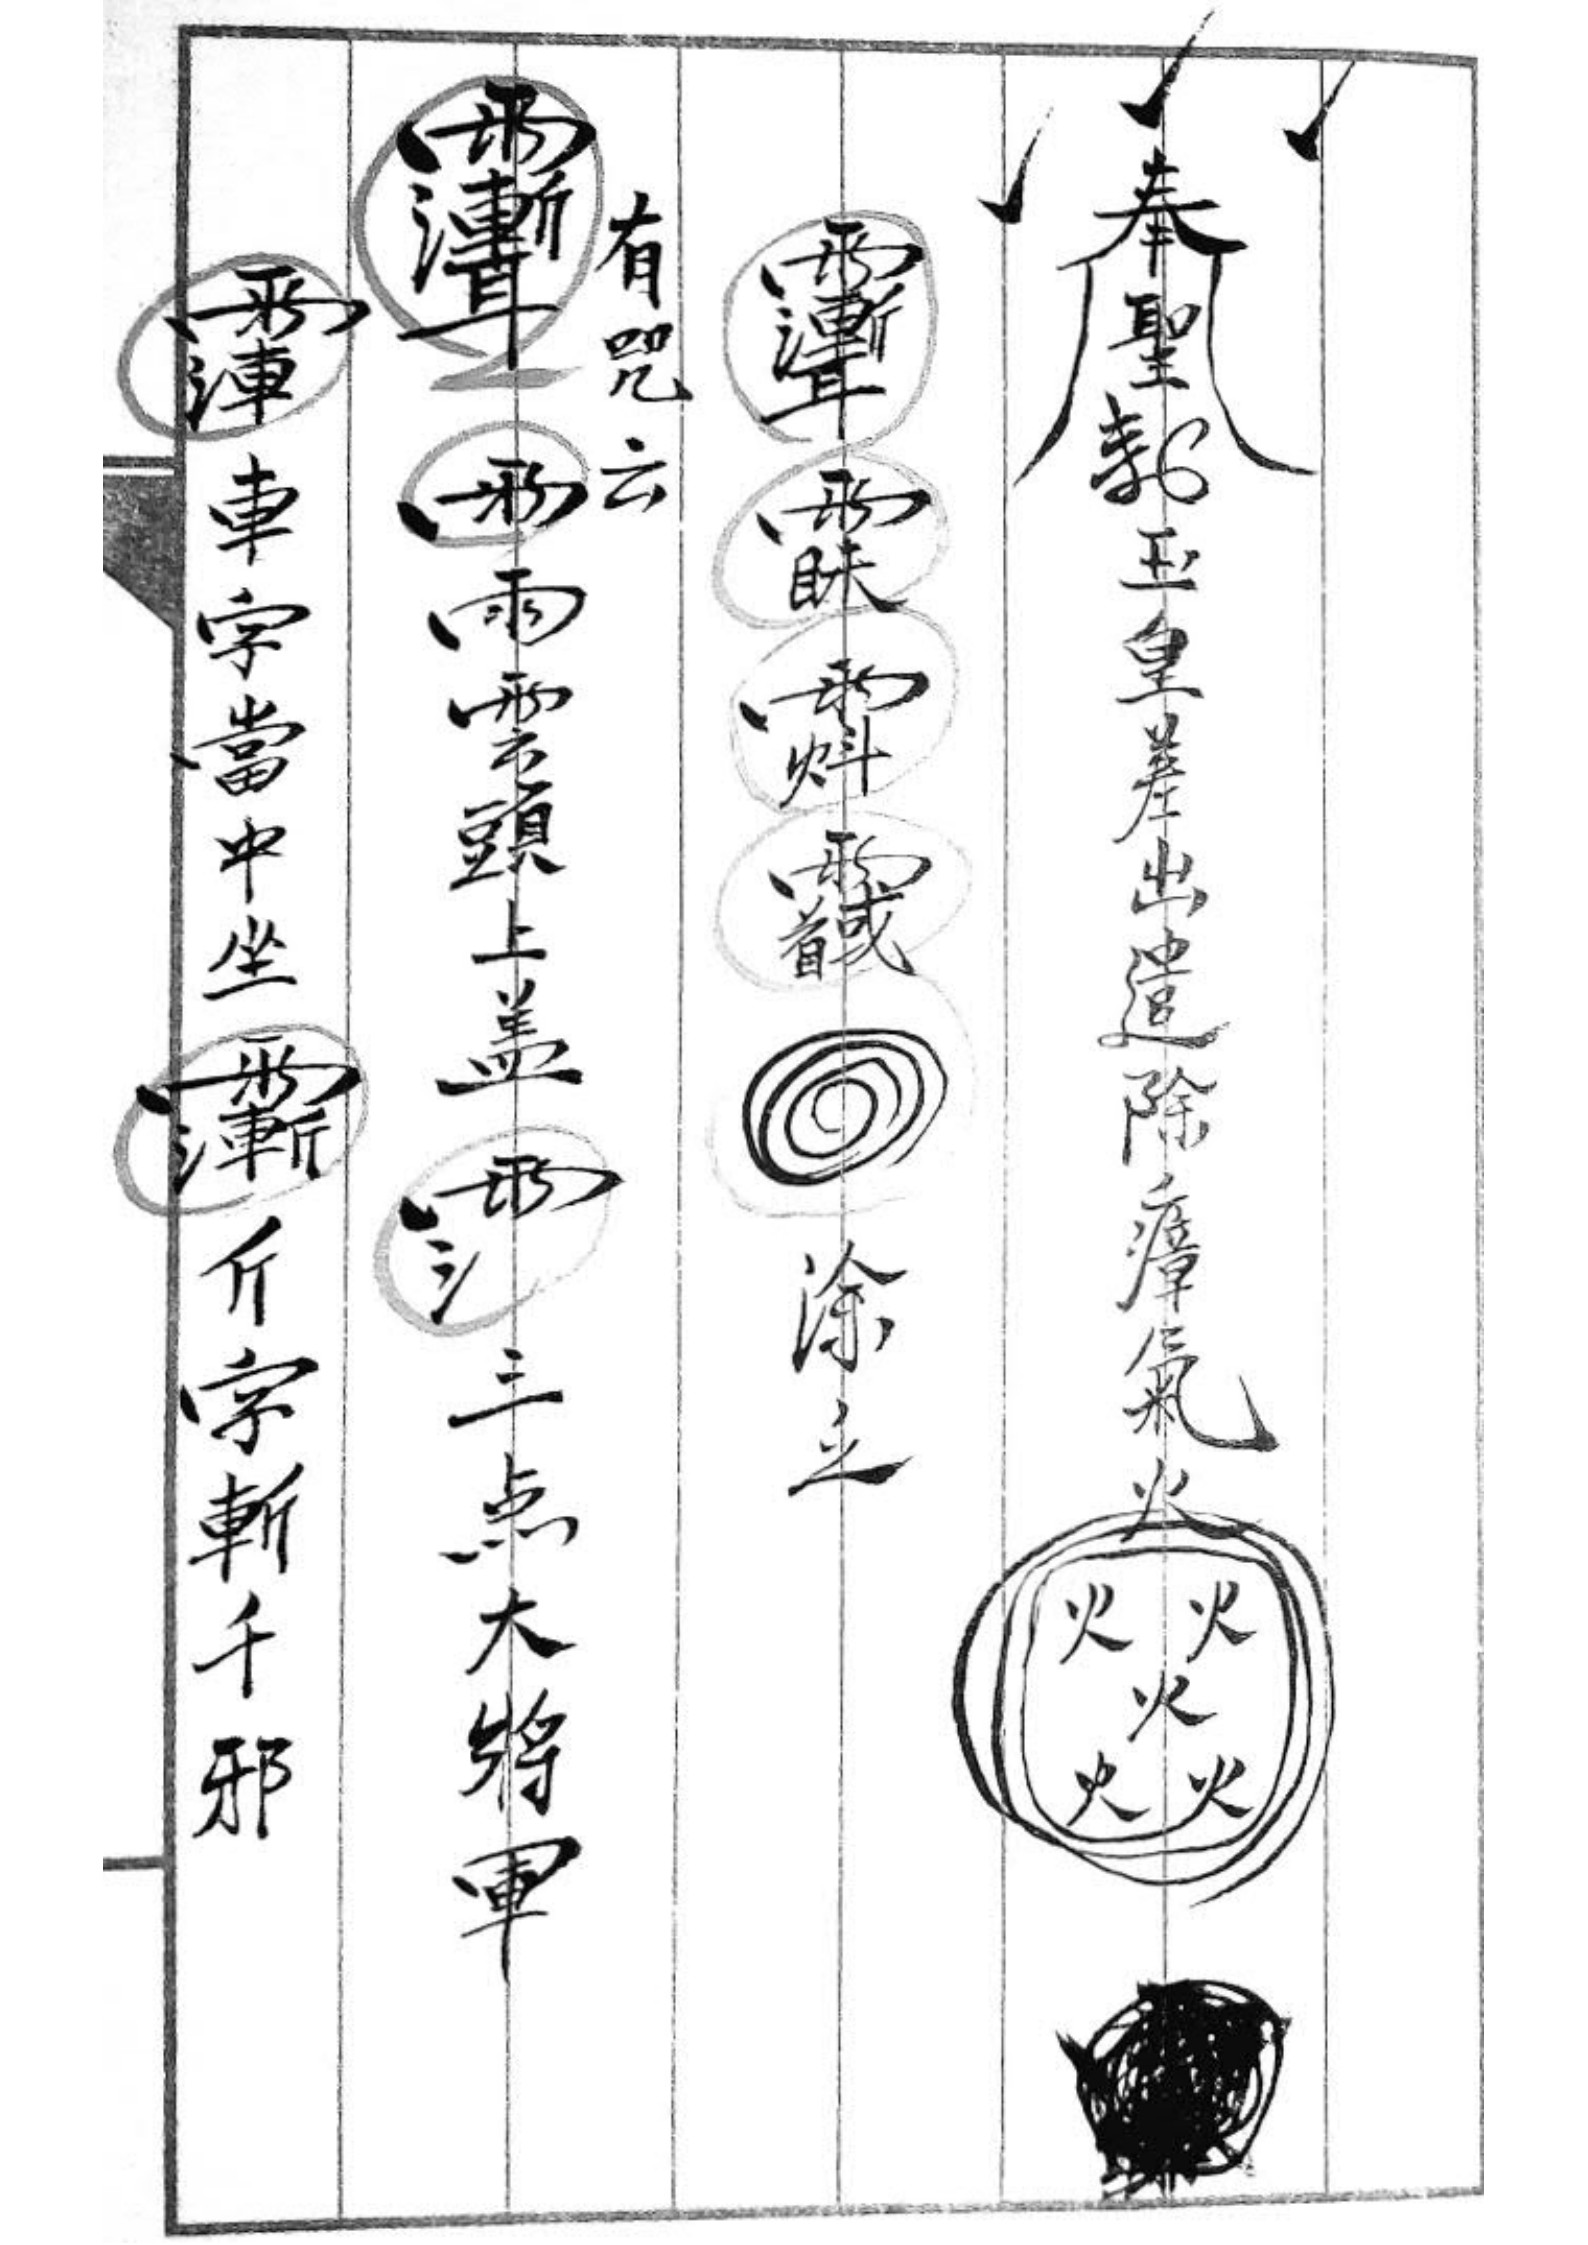 奉聖勅玉皇差出遣除瘴氣火
火火
火
火火
涂立
有咒云
雨雲頭上盖
三点大將軍
車字當中坐
斤字斬千邪